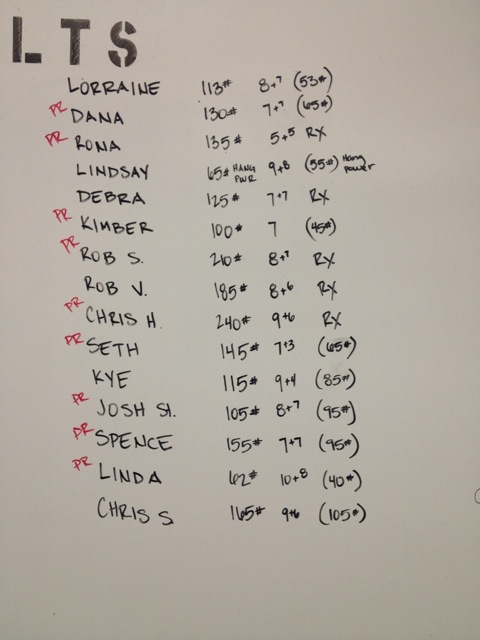 LTS
LORRAINE 113# 8+7 (53#)
PR DANA 130# 7+7 (65#)
PR RONA 135# 5+5 RX
LINDSAY 65# HANG PWR 9+8 (55#) Hang power
DEBRA 125# 7+7 RX
PR KIMBER 100# 7 (45#)
PR ROB S. 210# 8+7 RX
ROB V. 185# 8+6 RX
PR CHRIS H. 240# 9+6 RX
PR SETH 145# 7+3 (65#)
KYE 115# 9+4 (85#)
PR JOSH St. 105# 8+7 (95#)
PR SPENCE 155# 7+7 (95#)
PR LINDA 62# 10+8 (40#)
CHRIS S. 165# 9+6 (105#)